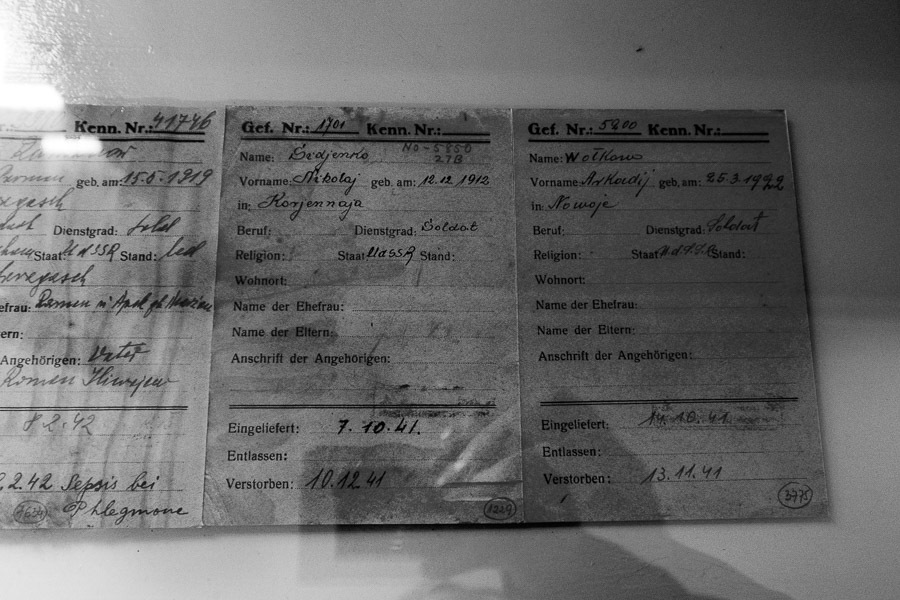 Kenn. Nr.: 41746
geb. am: 15.5.1919
Dienstgrad: Sold
Staat UdSSR Stand: led
Angehörigen: Vater
Romen
8.2.42
.2.42 Sepsis bei
Phlegmone
Gef. Nr.: 1701 Kenn. Nr.:
No-5850
27B
Name:
Vorname: Nikolaj geb. am: 12.12.1912
in: Korjennaja
Beruf: Dienstgrad: Soldat
Religion: Staat UdSSR Stand:
Wohnort:
Name der Ehefrau:
Name der Eltern:
Anschrift der Angehörigen:
Eingeliefert: 7.10.41.
Entlassen:
Verstorben: 10.12.41
1229
Gef. Nr.: 5800 Kenn. Nr.:
Name: Wolkow
Vorname: Arkadij geb. am: 25.3.1922
in: Nowoje
Beruf: Dienstgrad: Soldat
Religion: Staat U.d.S.S.R Stand:
Wohnort:
Name der Ehefrau:
Name der Eltern:
Anschrift der Angehörigen:
Eingeliefert: 14.10.41
Entlassen:
Verstorben: 13.11.41
3775